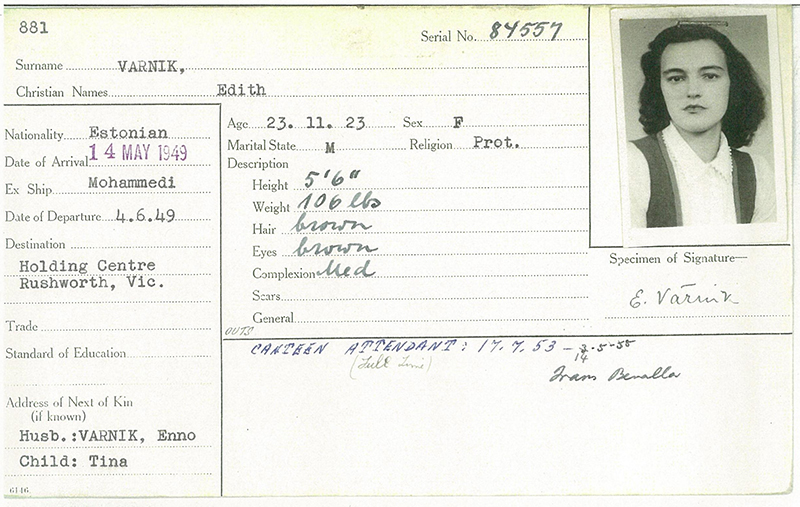 881
Serial No. 84557
Surname VARNIK,
Christian Names Edith
Nationality Estonian
Date of Arrival 14 MAY 1949
Ex Ship Mohammedi
Date of Departure 4.6.49
Destination
Holding Centre
Rushworth, Vic.
Trade
Standard of Education
Address of Next of Kin
(if known)
Husb.:VARNIK, Enno
Child: Tina
6146
Age 23. 11. 23 Sex F
Marital State M Religion Prot.
Description
Height 5'6"
Weight 106 lbs
Hair brown
Eyes brown
Complexion Med
Scars
General
Specimen of Signature—
E. Värnik
OUTS
CANTEEN ATTENDANT: 17.7.53 –
(Full Time)
Trans Benalla